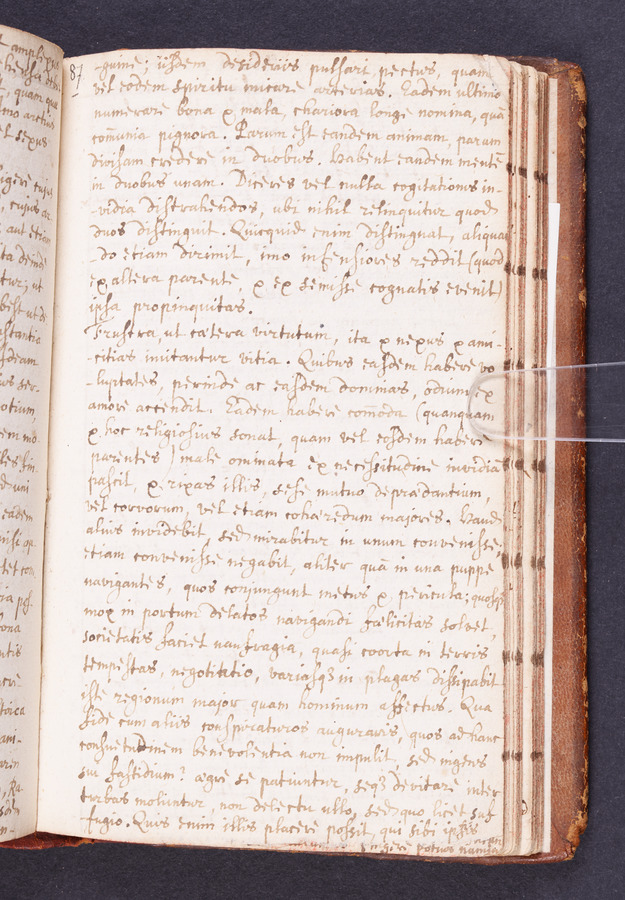 87
-guine; iisdem desideriis pulsari pectus, quam
vel eodem spiritu micare arterias. Eadem ultimo
numerare bona & mala, chariora longe nomina, quā
com̄unia pignora. Parum est eandem animam, parum
divisam credere in duobus. Habent eandem mente
in duobus unam. Diceres vel nulla cogitationis in-
-vidia distrahendos, ubi nihil relinquitur quod
duos distinguit. Quicquid enim distinguat, aliquan
-do etiam dirimit, imo infensiores reddit (quod
ex altera parente, & ex semisse cognatis evenit)
ipsa propinquitas.
Frustra, ut cætera virtutum, ita & nexus & ami-
-citias imitantur vitia. Quibus easdem habere vo
-luptates, perinde ac easdem dominas, odium ex
amore accendit. Eadem habere com̄oda (quanquam
& hoc religiosius sonat, quam vel eosdem habere
parentes) male ominata ex necessitudine invidia
pascit, & rixas illis, sese mutuo deprædantium,
vel corvorum, vel etiam cohæredum majores. Haud
alius invidebit, sed mirabitur in unum convenisse;
etiam convenisse negabit, aliter quā in una puppe
navigantes, quos conjungunt metus & pericula; quosq;
mox in portum delatos navigandi fœlicitas solvet,
societatis faciet naufragia, quasi coorta in terris
tempestas, negotiatio, variasq; in plagas dissipabit
iste regionum major quam hominum affectus. Qua
fide cum aliis conspiraturos auguraris, quos ad hanc
consuetudinem benevolentia non impulit, sed ingens
sui fastidium? ægre se patiuntur, seq; devitare inter
turbas moliuntur, non delectu ullo, sed quo licet suf
-fugio. Quis enim illis placere possit, qui sibi ipsis
potuit